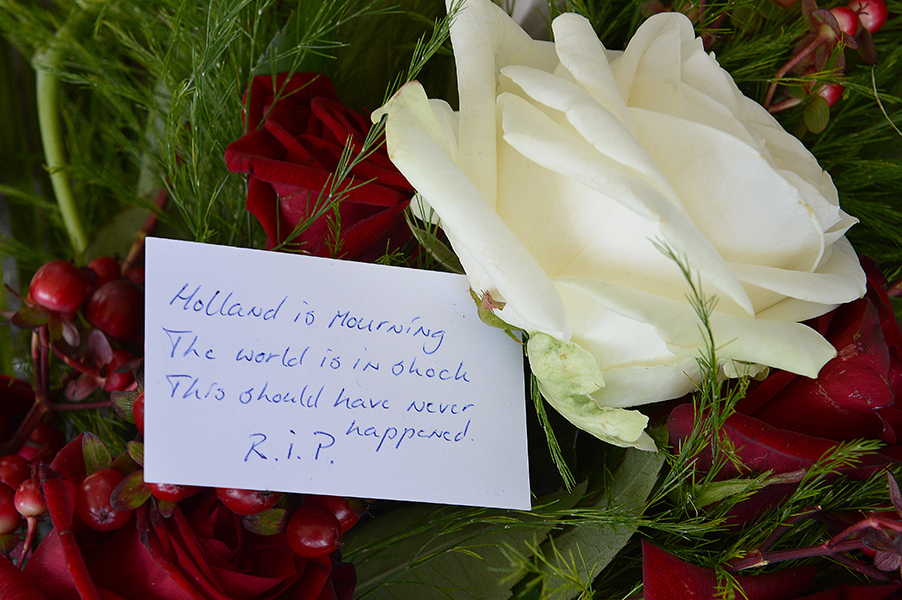 Holland is Mourning
The world is in shock
This should have never
happened.
R.i.P.